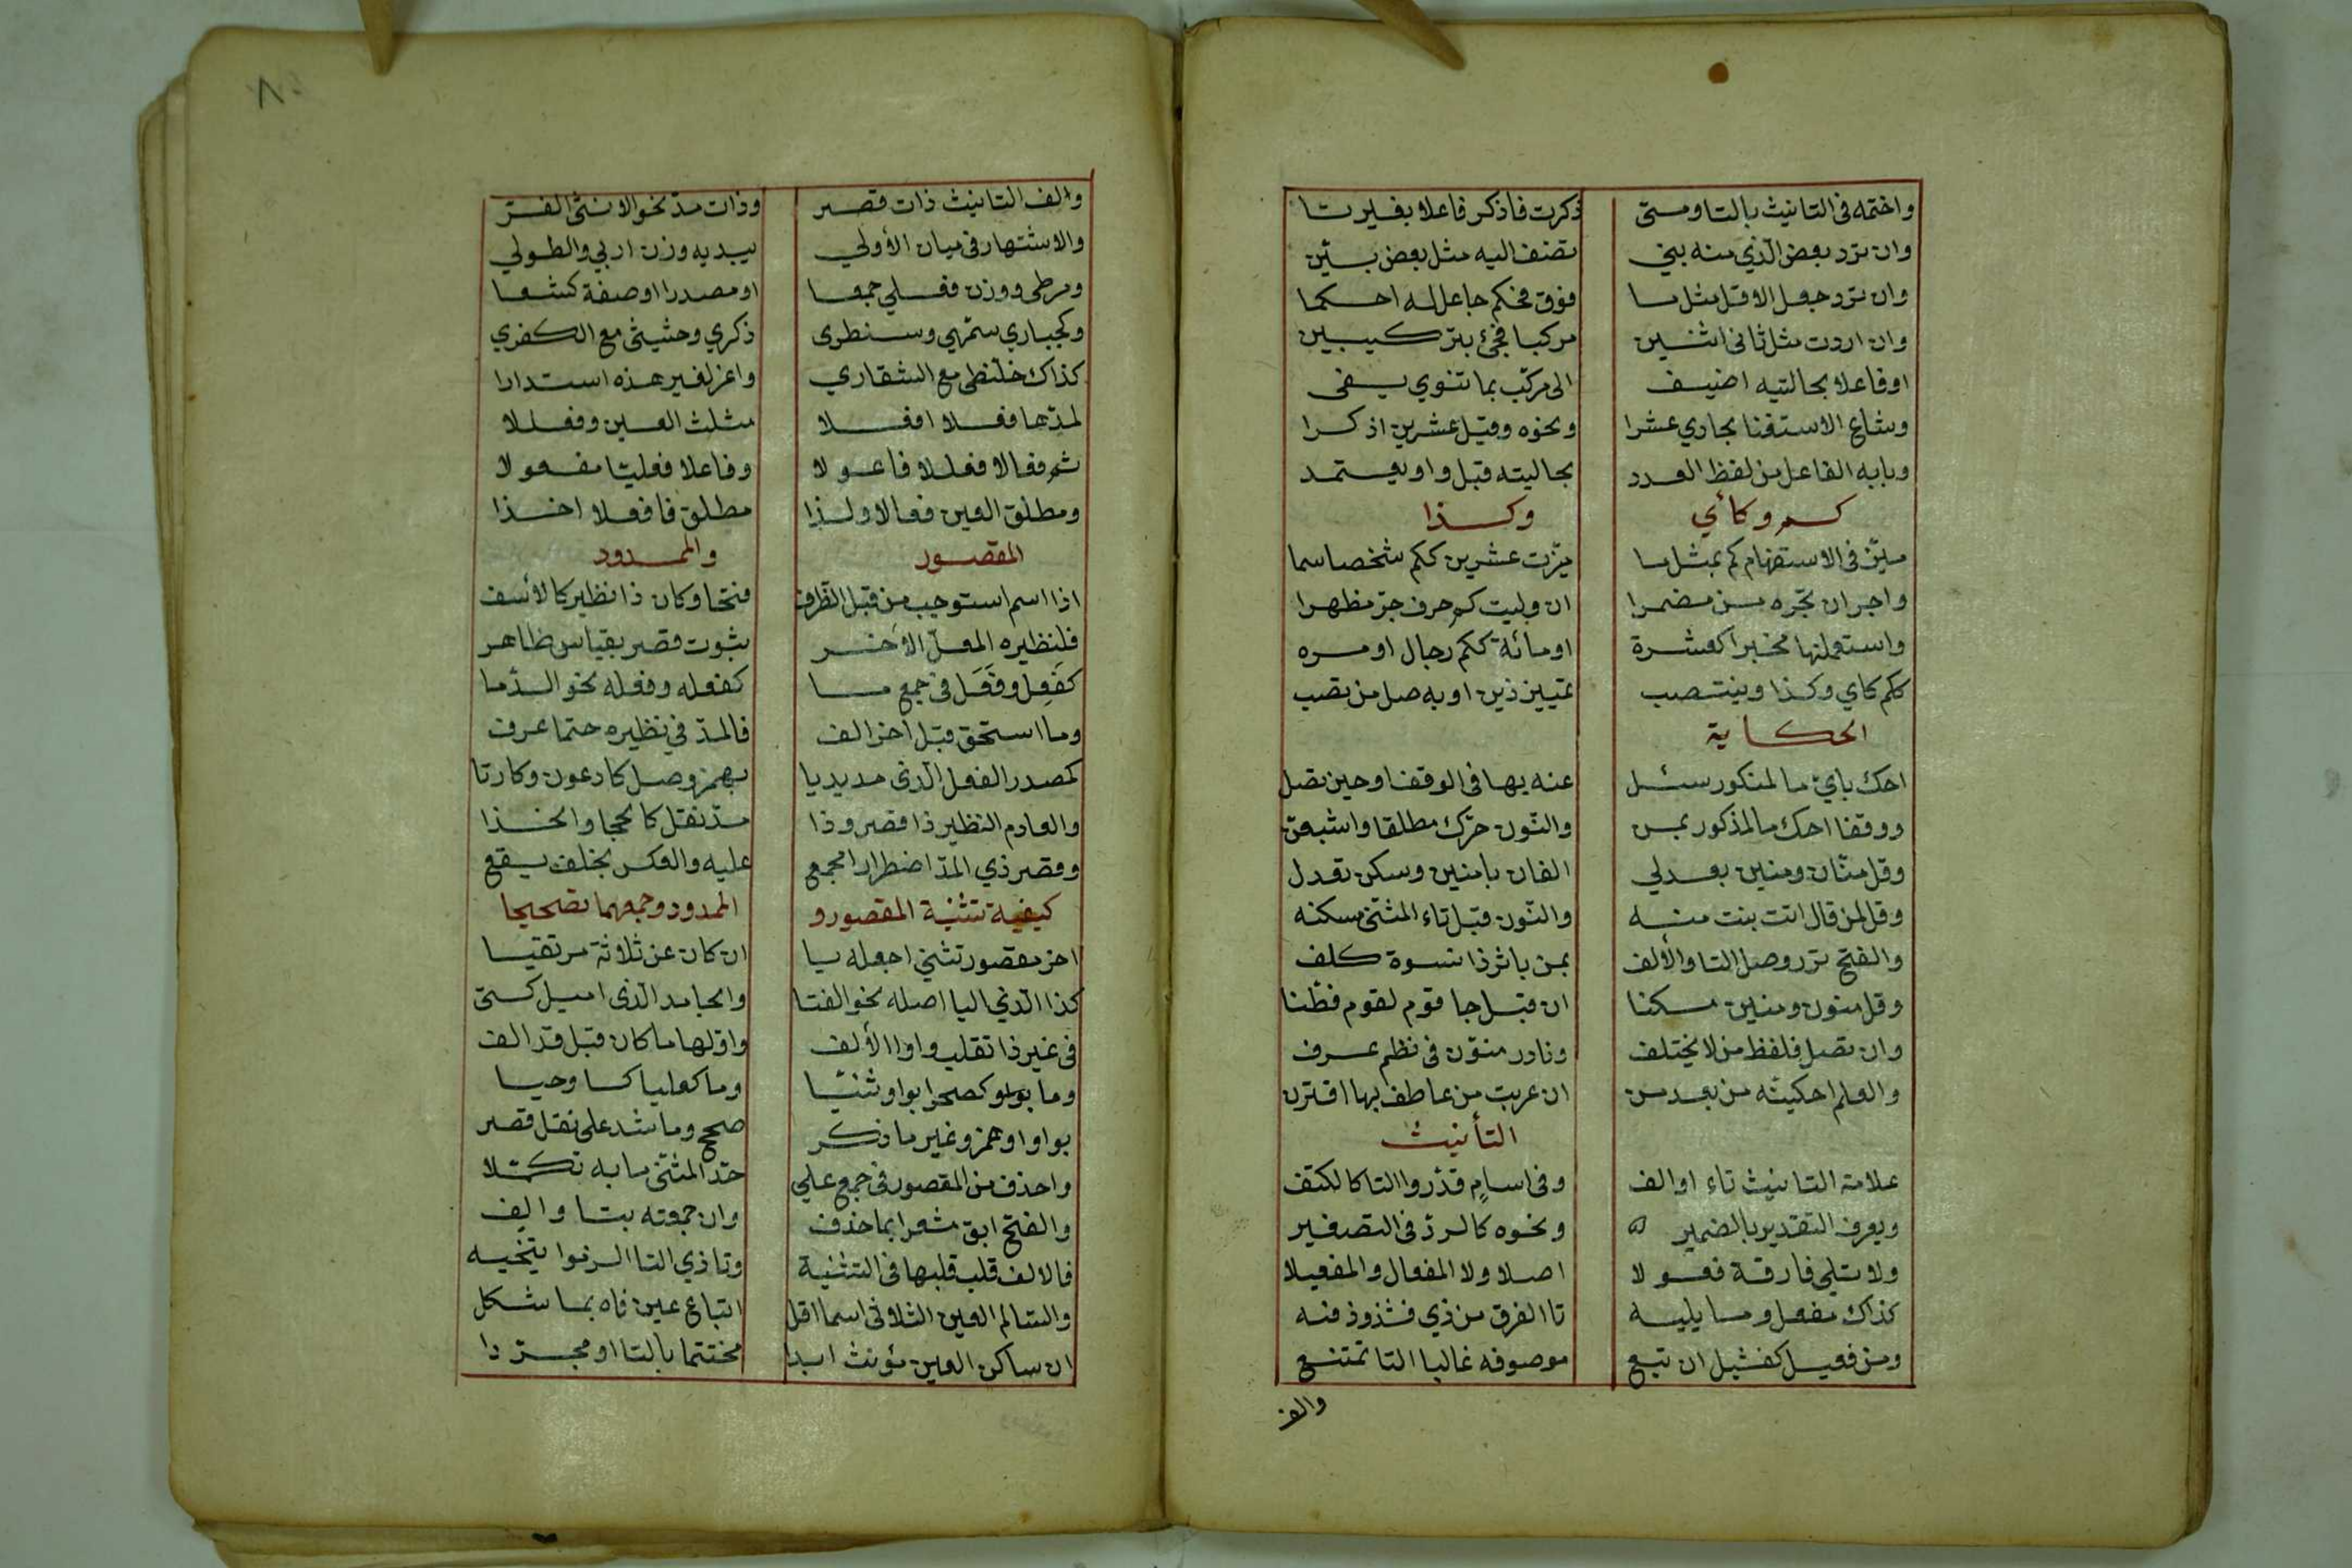 واختمه فى التانيث بالتا ومتى ذكرت فاذكر فاعلا بغير تا
وان ترد بعض الّذي منه بني تضف اليه مثل بعض بيّن
وان ترد جعل الاقل مثل ما فوق فحكم جاعل له احكما
وان اردت مثل ثانى اثنين مركبا فجئ بتركيبين
او فاعلا بحالتيه اضيف الى مركّب بما تنوي يفى
وشاع الاستغنا بحادي عشرا ونحوه وقبل عشرين اذكرا
وبابه الفاعل من لفظ العدد بحاليته قبل واو يعتمد
كم وكأي وكذا
ميّز فى الاستفهام كم بمثل ما ميّزت عشرين ككم شخصا سما
واجر ان تجّره من مضمرا ان وليت كم حرف جرّ مظهرا
واستعملنها مخبرا كعشرة او مائة ككم رجال او مره
ككم كاي وكذا وينتصب تمييز ذين او به صل من تصب
الحكاية
احك بايّ ما لمنكور سئل عنه بها فى الوقف او حين تصل
ووقفا احك ما لمذكور بمن والنّون حرّك مطلقا واشبعن
وقل منان ومنين بعد لي الفان بابنين وسكن تعدل
وقل لمن قال اتت بنت منه والنّون قبل تاء المثنّى مسكنه
والفتح نزر وصل التا والألف بمن باثر ذا نسوة كلف
وقل منون ومنين مسكنا ان قيل جا قوم لقوم فطّنا
وان تصل فلفظ من لا يختلف ونادر منون فى نظم عرف
والعلم احكينّه من بعد من ان عريت من عاطف بها اقترن
التأنيث
علامة التانيث تاء او الف وفى اسام قدّروا التا كالكتف
ويعرف التقدير بالضمير ونحوه كالردّ فى التصغير
ولا تلى فارقة فعولا اصلا ولا المفعال والمفعيلا
كذاك مفعل وما يليه تا الفرق من ذي فشذوذ فيه
ومن فعيل كقتيل ان تبع موصوفه غالبا التا تمتنع
والف
والف التانيث ذات قصر وذات مدّ نحو الانثى الغرّ
والاشتهار فى مبان الأولي يبديه وزن اربي والطولي
ومرطى ووزن فعلي جمعا او مصدرا او صفة كشبعا
وكحباري سمّهي وسبطرى ذكري وحثيثى مع الكفري
كذاك خلّيطى مع الشقاري واعز لغير هذه استدارا
لمدّها فعلا افعلا مثلث العين وفعللا
ثم فعالا فعللا فاعولا وفاعلا فعليا مفعولا
ومطلق العين فعالا ولذا مطلق فا فعلا اخذا
المقصور والممدود
اذا اسم استوجب من قبل الطّرف فتحا وكان ذا نظير كالأسف
فلنظيره المعلّ الأخر ثبوت قصر بقياس ظاهر
كفِعل وفُعَل فى جمع ما كفعله وفعله نحو الدّما
وما استحق قبل اخر الف فالمدّ في نظيره حتما عرف
كمصدر الفعل الّذى مد يديا بهمز وصل كادعون وكارتا
والعادم النظير ذا قصر وذا مدّ بنقل كالحجا والخذا
وقصر ذي المدّ اضطرارا مجمع عليه والعكس بخلف يقع
كيفية تثنية المقصور و الممدود وجمعهما تصحيحا
اخر مقصور تثنى اجعله يا ان كان عن ثلاثة مرتقيا
كذا الّذي اليا اصله نحو الفتا والجامد الّذى اميل كمتى
فى غير ذا تقلب واوا الألف واولها ما كان قبل قد الف
وما كصحرا بواو ثنّيا وما كعليا كسا وحيا
بواو او همز وغير ما ذكر صحح وما شد على نقل قصر
واحذف من المقصور فى جمع علي حدّ المثنّى ما به تكمّلا
والفتح ابق مشعرا بما حذف وان جمعته بتا والف
فالالف قلب قلبها فى التثنية وتا ذي التا الزموا
والسّالم العين الثلاثى اسما اقل اتباع عين فاه بما شكل
ان ساكن العين مؤنث ابدا مختتما بالتا او مجرّدا